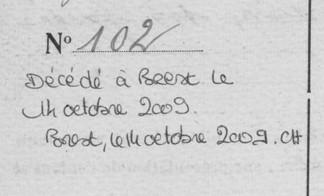 N° 102
Décédé à Brest le
14 octobre 2009.
Brest, le 14 octobre 2009. CH